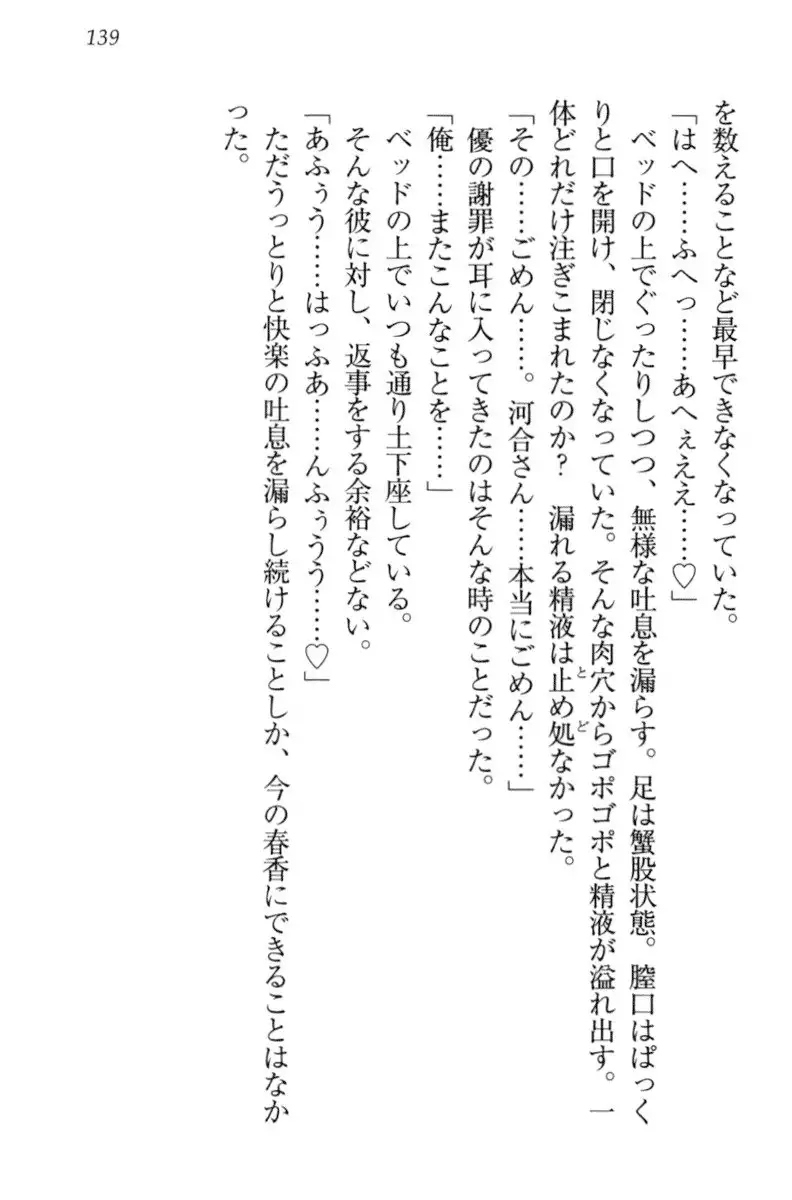 139
を数えることなど最早できなくなっていた。
「はへ……ふへっ……あへぇええ……♡」
ベッドの上でぐったりしつつ、無様な吐息を漏らす。足は蟹股状態。膣口はぱっく
りと口を開け、閉じなくなっていた。そんな肉穴からゴポゴポと精液が溢れ出す。一
体どれだけ注ぎこまれたのか？　漏れる精液は止め処なかった。
「その……ごめん……。河合さん……本当にごめん……」
優の謝罪が耳に入ってきたのはそんな時のことだった。
「俺……またこんなことを……」
ベッドの上でいつも通り土下座している。
そんな彼に対し、返事をする余裕などない。
「あふぅう……はっふあ……んふぅうう……♡」
ただうっとりと快楽の吐息を漏らし続けることしか、今の春香にできることはなか
った。